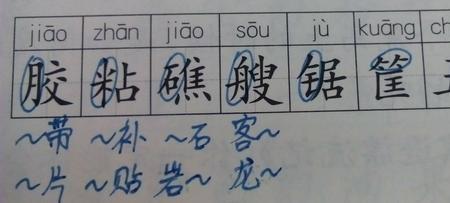 jiāo zhān jiāo sōu jù kuāng ch
胶 粘 礁 艘 锯 筐
~带 ~补 ~石 客~
~片 ~贴 岩~ 龙~